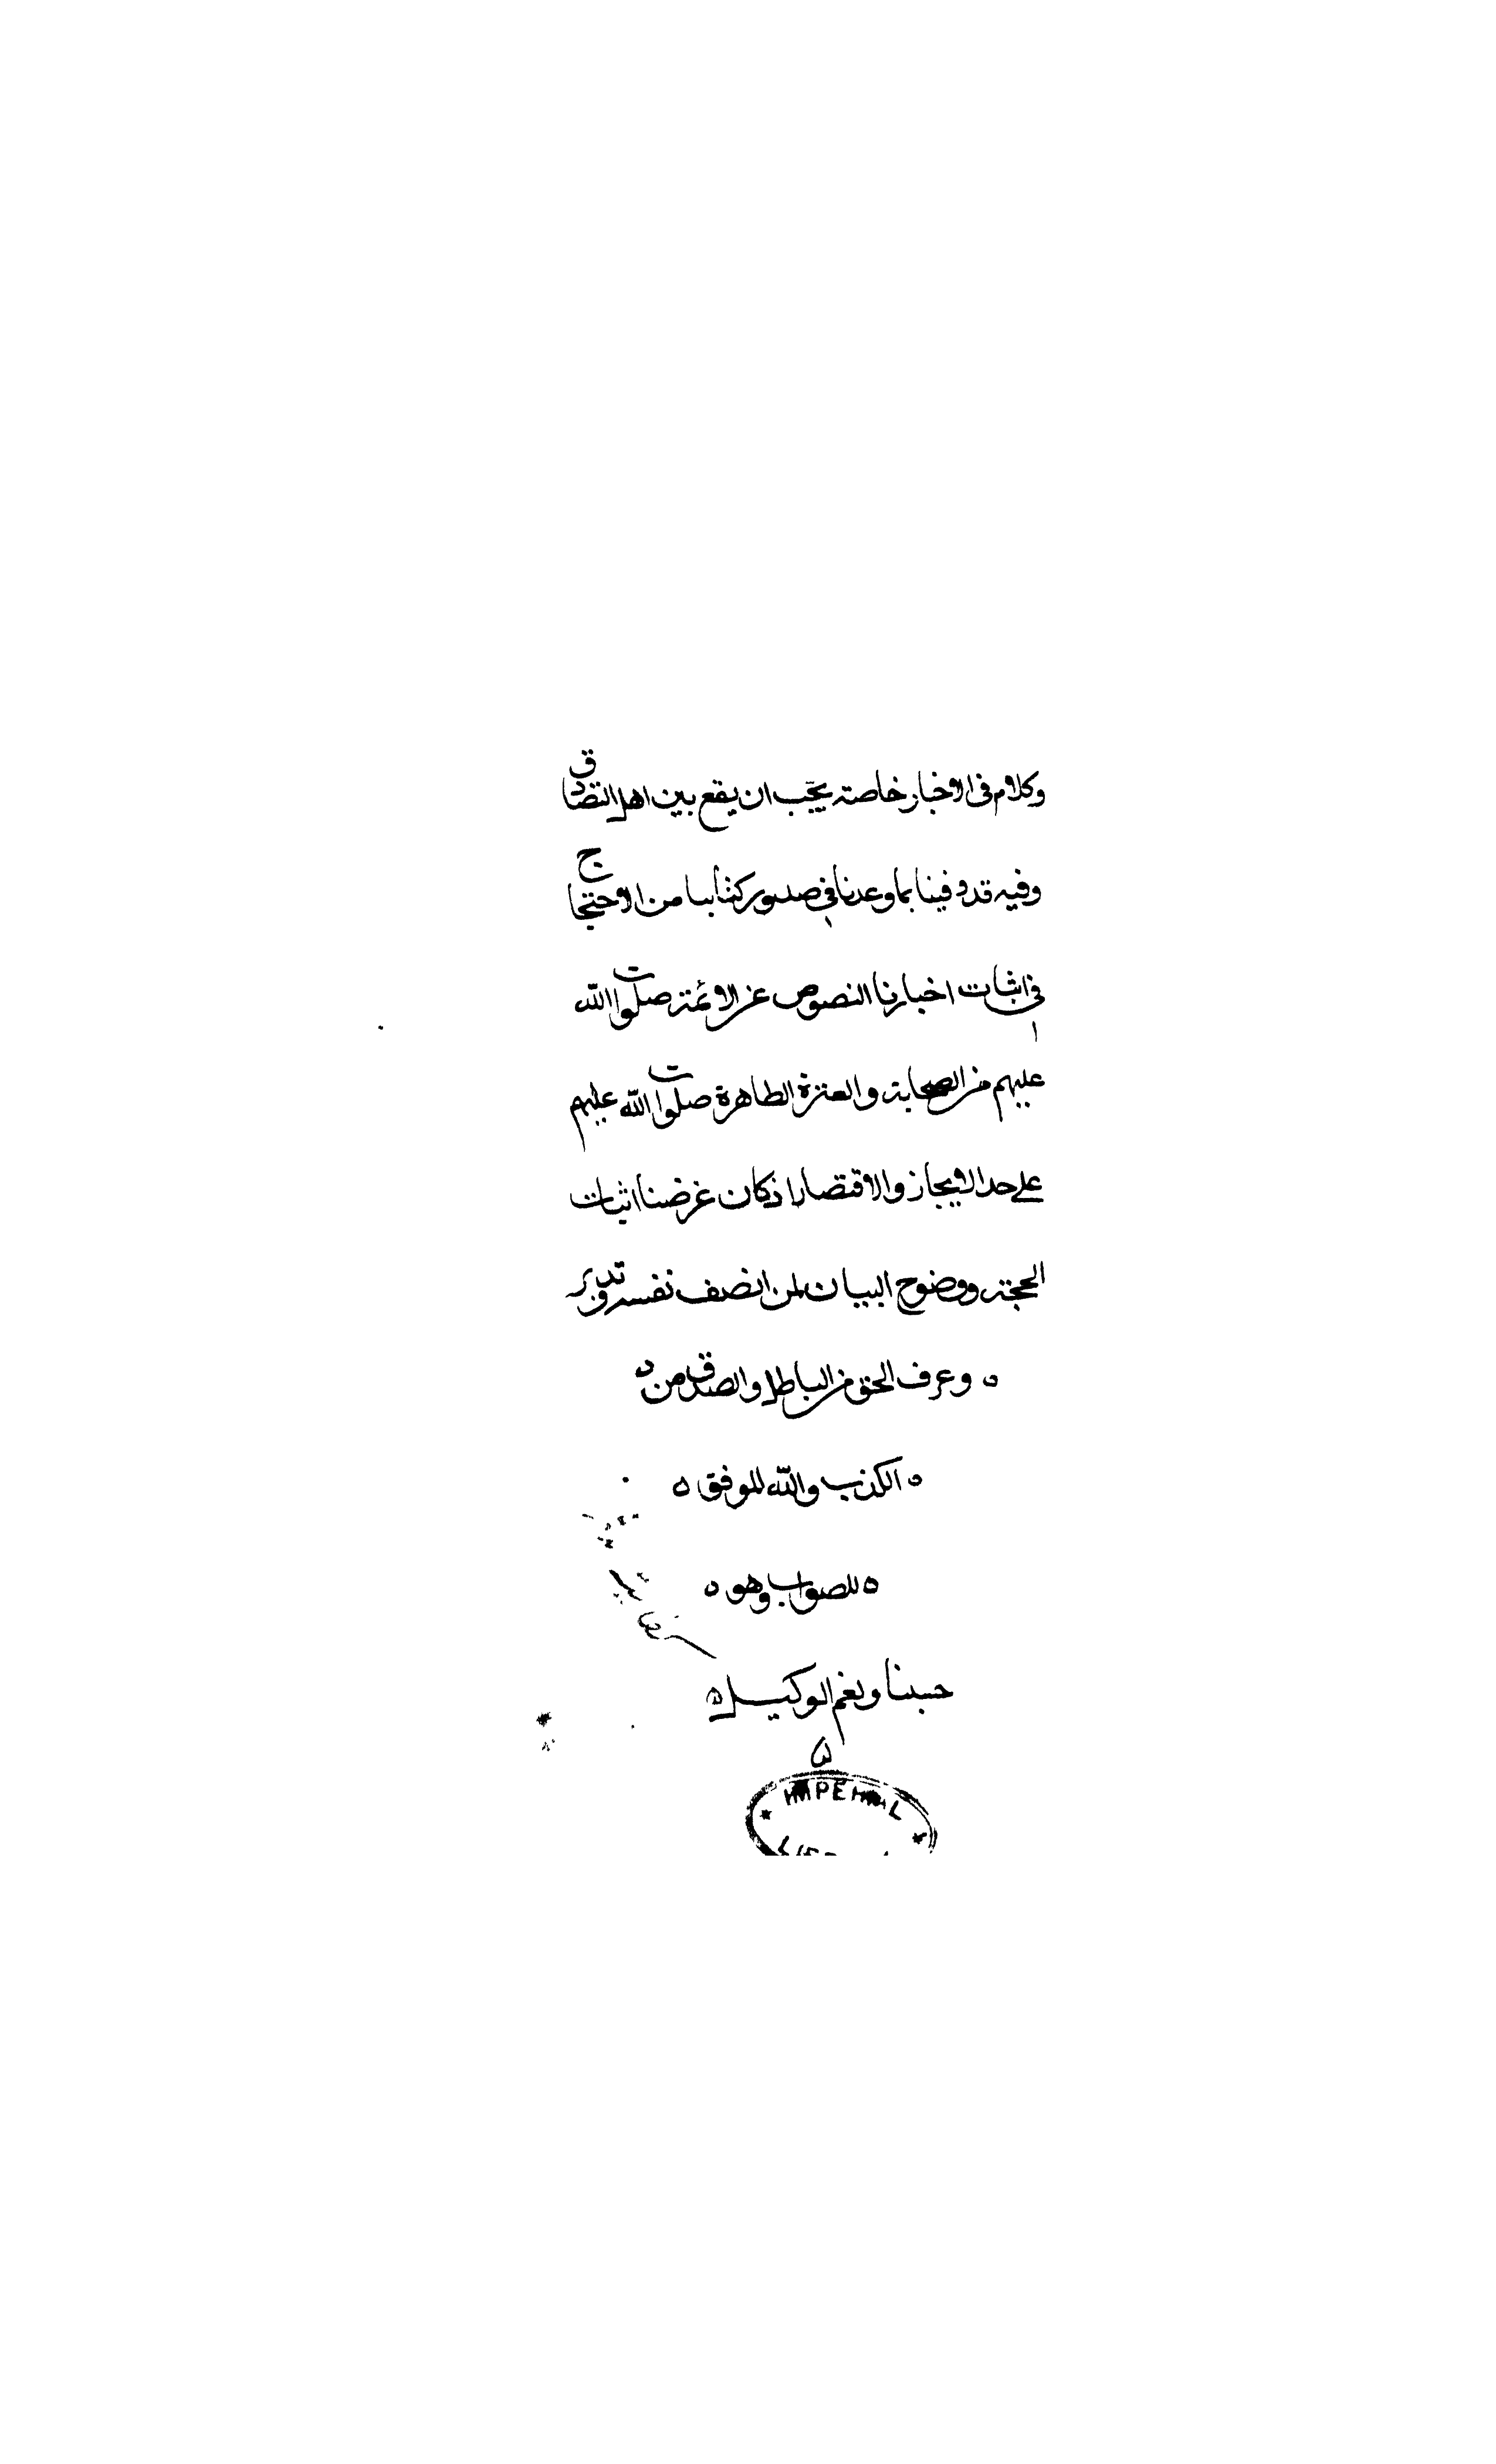 وكلام في الاخبار خاصة يجب ان يقع بين اهل التصادق
وفيه قد وفينا بما وعدنا في صدور كتابنا من الاحتجاج
في اثبات اخبارنا النصوص عن الائمة صلوات الله
عليهم من الصحابة والعترة الطاهرة صلوات الله عليهم
على حد الايجاز والاقتصار اذ كان غرضنا اثبات
الحجة ووضوح البيان لمن انصف نفسه وتدبر
وعرف الحق من الباطل والصدق من
الكذب والله الموفق
للصواب وهو
حسبنا ونعم الوكيل
IMPERIAL